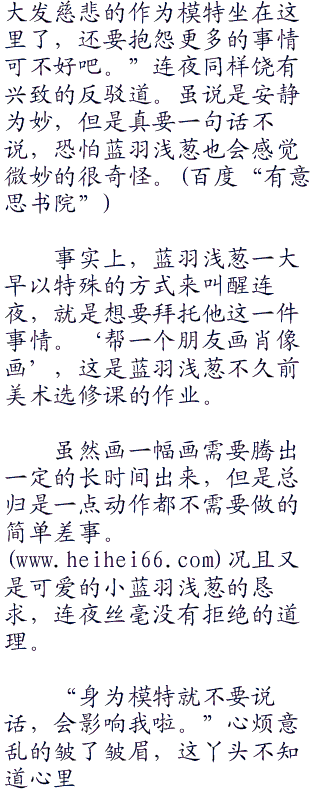 大发慈悲的作为模特坐在这
里了，还要抱怨更多的事情
可不好吧。”连夜同样饶有
兴致的反驳道。虽说是安静
为妙，但是真要一句话不
说，恐怕蓝羽浅葱也会感觉
微妙的很奇怪。(百度“有意
思书院”)
事实上，蓝羽浅葱一大
早以特殊的方式来叫醒连
夜，就是想要拜托他这一件
事情。‘帮一个朋友画肖像
画’，这是蓝羽浅葱不久前
美术选修课的作业。
虽然画一幅画需要腾出
一定的长时间出来，但是总
归是一点动作都不需要做的
简单差事。
(www.heihei66.com)况且又
是可爱的小蓝羽浅葱的恳
求，连夜丝毫没有拒绝的道
理。
“身为模特就不要说
话，会影响我啦。”心烦意
乱的皱了皱眉，这丫头不知
道心里